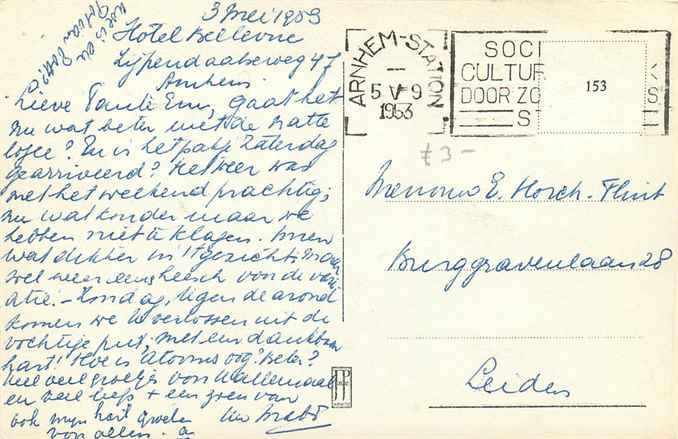 3 Mei 1953
Hotel Bellevue
Zijpendaalseweg 47
Arnhem
Lieve Tante Em, gaat het
nu wat beter met de natte
losee? En is het pakje Zaterdag
gearriveerd? Het weer was
met het weekend prachtig;
nu wat kouder maar we
hebben niet te klagen.
wat dikker in 't gezicht, maar
wel weer eens heesch voor de vari
atie! - Zondag tegen de avond
komen we U verlossen uit de
vochtige put, met een dankbaar
hart! Hoe is Atooms oog? Beter?
Veel veel groetjes van U allemaal
en veel liefs + een zoen van
ook mijn hart. groeten
van allen.
Hoe is die
ARNHEM-STATION
5 V 9
1953
SOCI
CULTUR
DOOR ZO S
S
153
£ 3-
Mevrouw E. Horch-Flint
Burggravenlaan 28
Leiden
JP